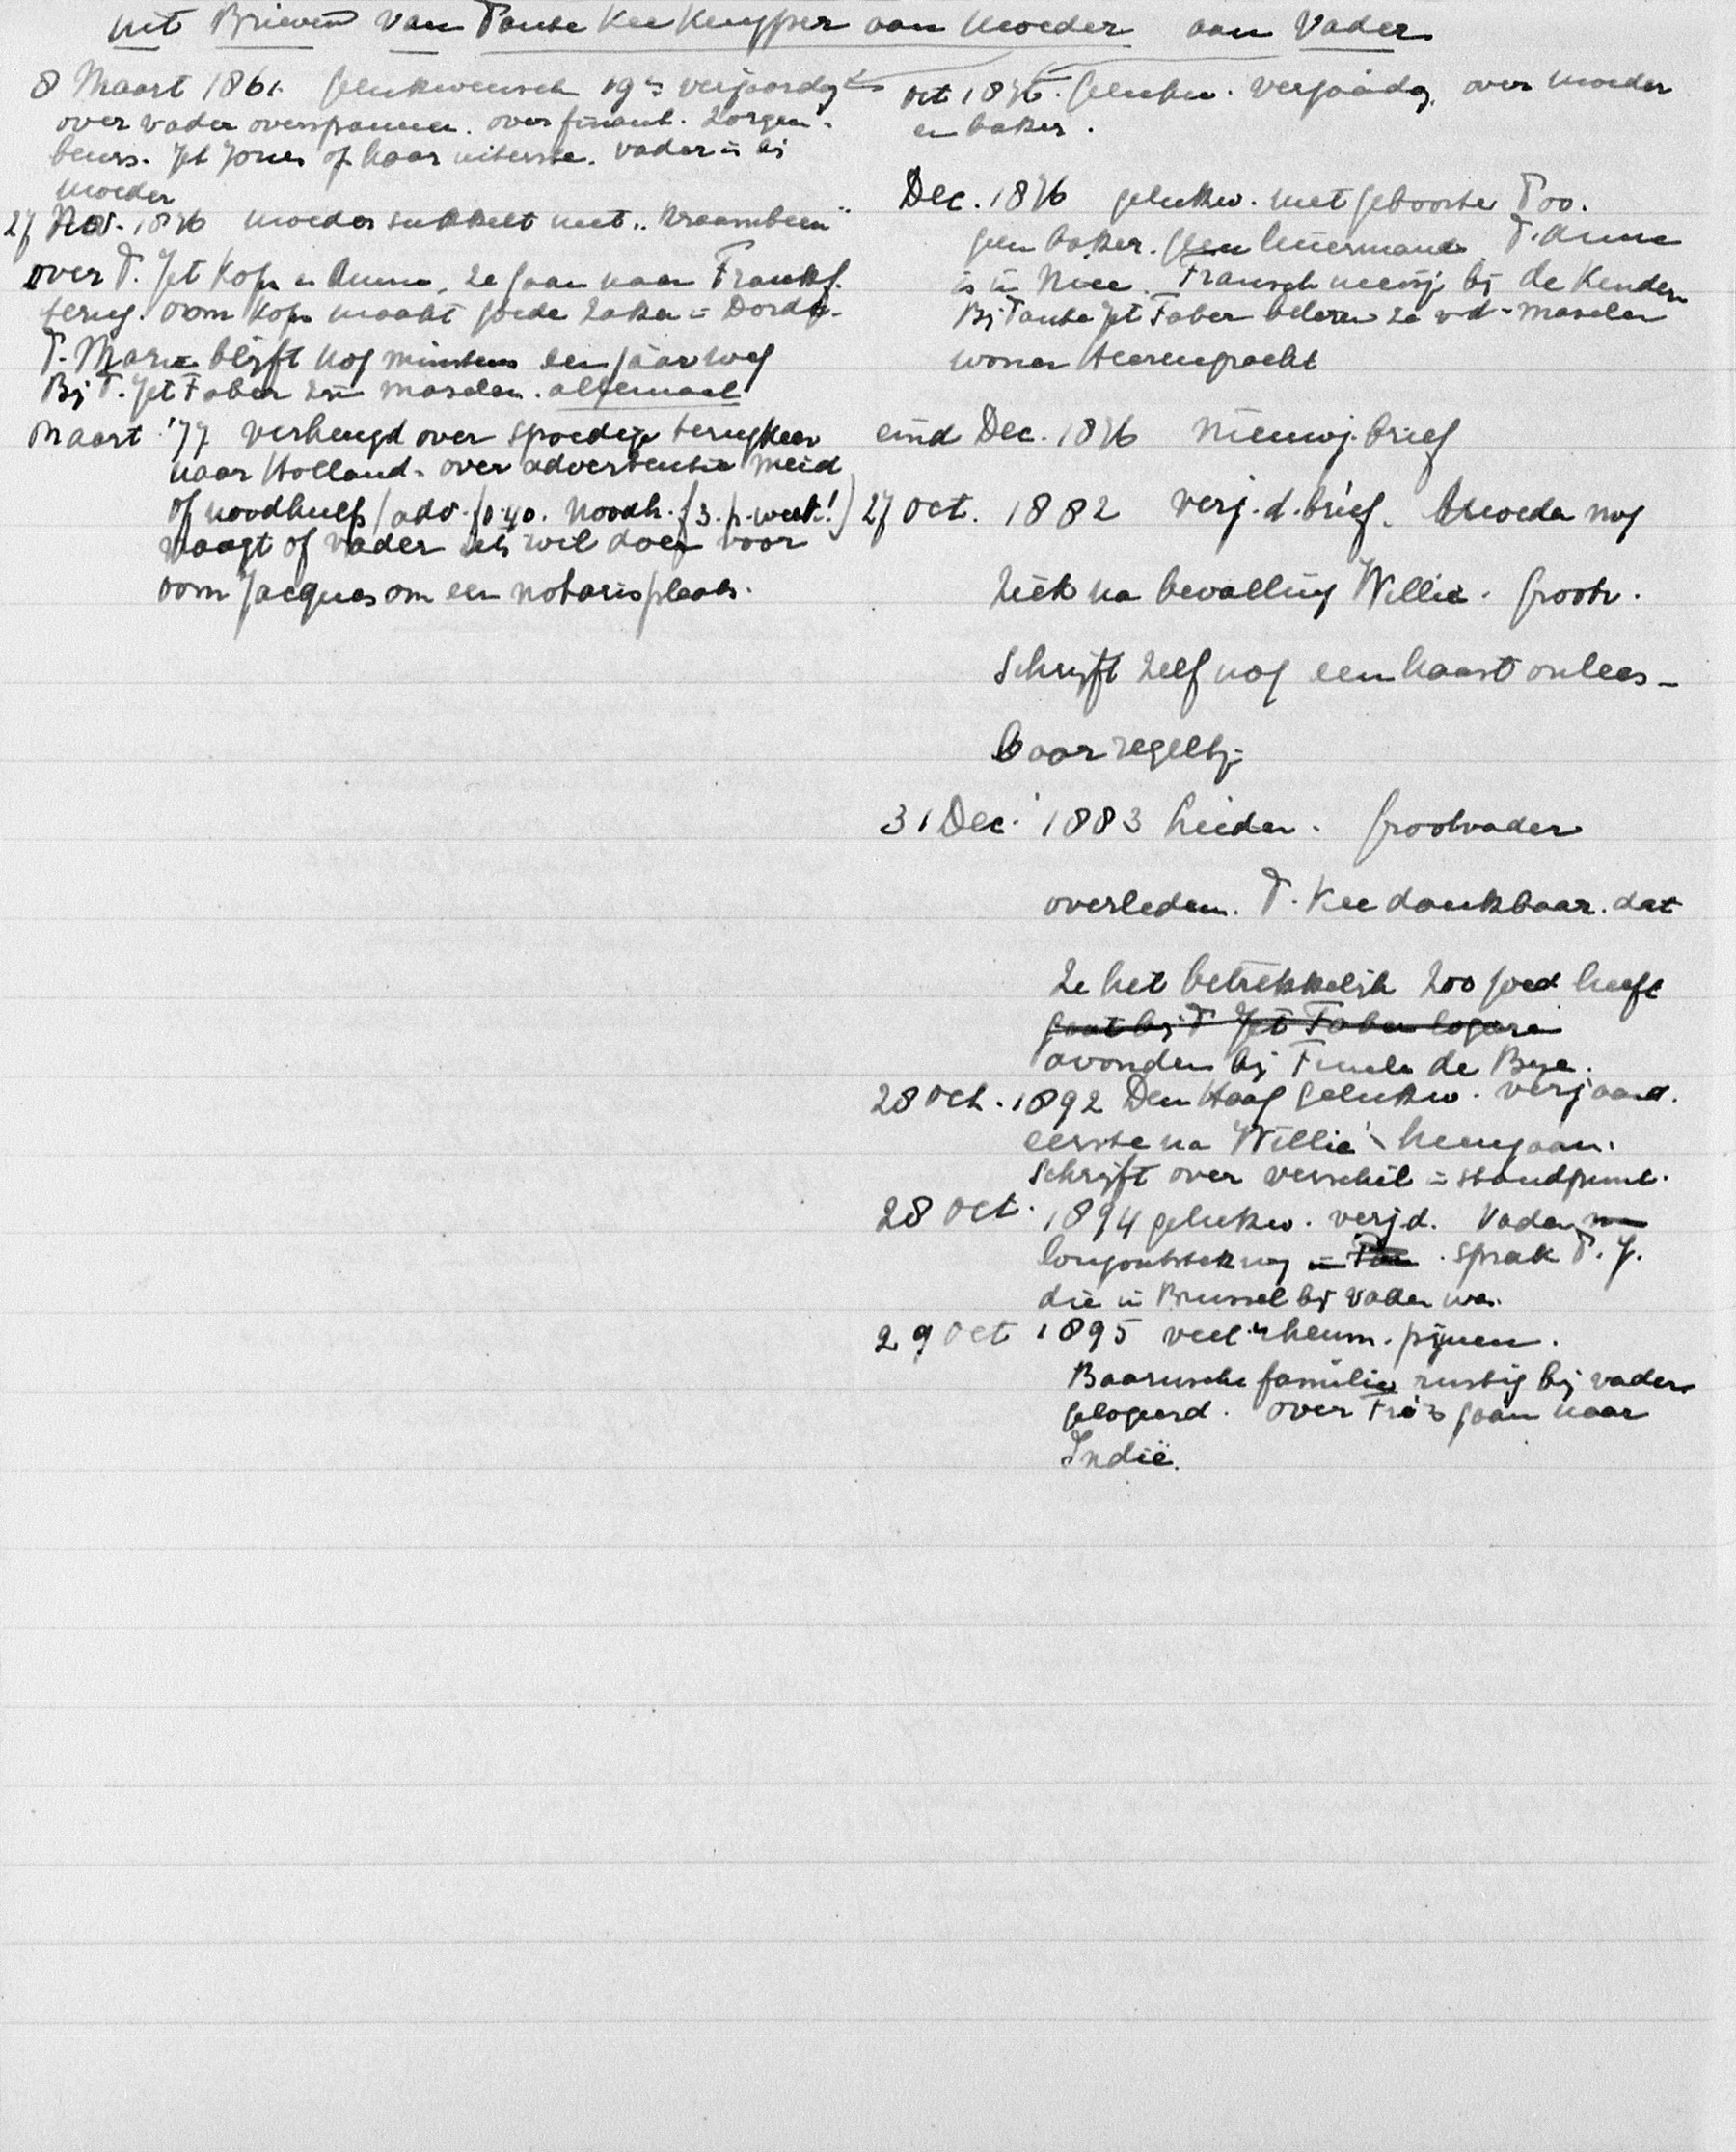 uit Brieven van Tante Kee Kuyper aan Moeder aan Vader.
8 Maart 1861. Gelukwensch 19e verjaardag
over vader overspannen. over finant. zorgen.
beurs. Jet Jones op haar uiterste. Vader is bij
moeder
27 Nov. 1876 moeder sukkelt met „kraambeen"
over T. Jet Kop en Anna, ze gaan naar Frankf.
terug. oom Kop maakt goede zaken in Dordr.
T. Marie blijft nog minstens een jaar weg
Bij T. Jet Faber zijn mazelen. allemaal
Maart '77 verheugd over spoedige terugkeer
naar Holland. over advertentie meid
of noodhulp (adv. f 0.40. Noodh. f 3. p. week!)
vraagt of vader iets wil doen voor
oom Jacques om een notarisplaats.
Oct 1876. Gelukw. verjaardag. over moeder
en baker.
Dec. 1876 gelukw. met geboorte Too.
geen baker. geen luiermand. T. Anna
is in Nice. Fransch meisje bij de kinderen
Bij Tante Jet Faber beteren ze v.d. mazelen
wonen Heerengracht
eind Dec. 1876 Nieuwj. brief
27 Oct. 1882 verj. d. brief. Moeder nog
ziek na bevalling Willie. Grootv.
schrijft zelf nog een haast onlees-
baar regeltje
31 Dec. 1883 Leiden. Grootvader
overleden. T. Kee dankbaar. dat
ze het betrekkelijk zoo goed heeft
gaat bij T Jet Faber logeren
avonden bij Femele de Bye.
28 Oct. 1892 Den Haag gelukw. verjaard.
eerste na Willie's heengaan.
Schrijft over verschil in standpunt.
28 Oct. 1894 gelukw. verj.d. Vader
longontsteking . sprak T. J.
die in Brussel bij vader was.
29 Oct 1895 veel rheum. pijnen.
Baarnsche familie rustig bij vader
gelogeerd. over Frits gaan naar
Indië.